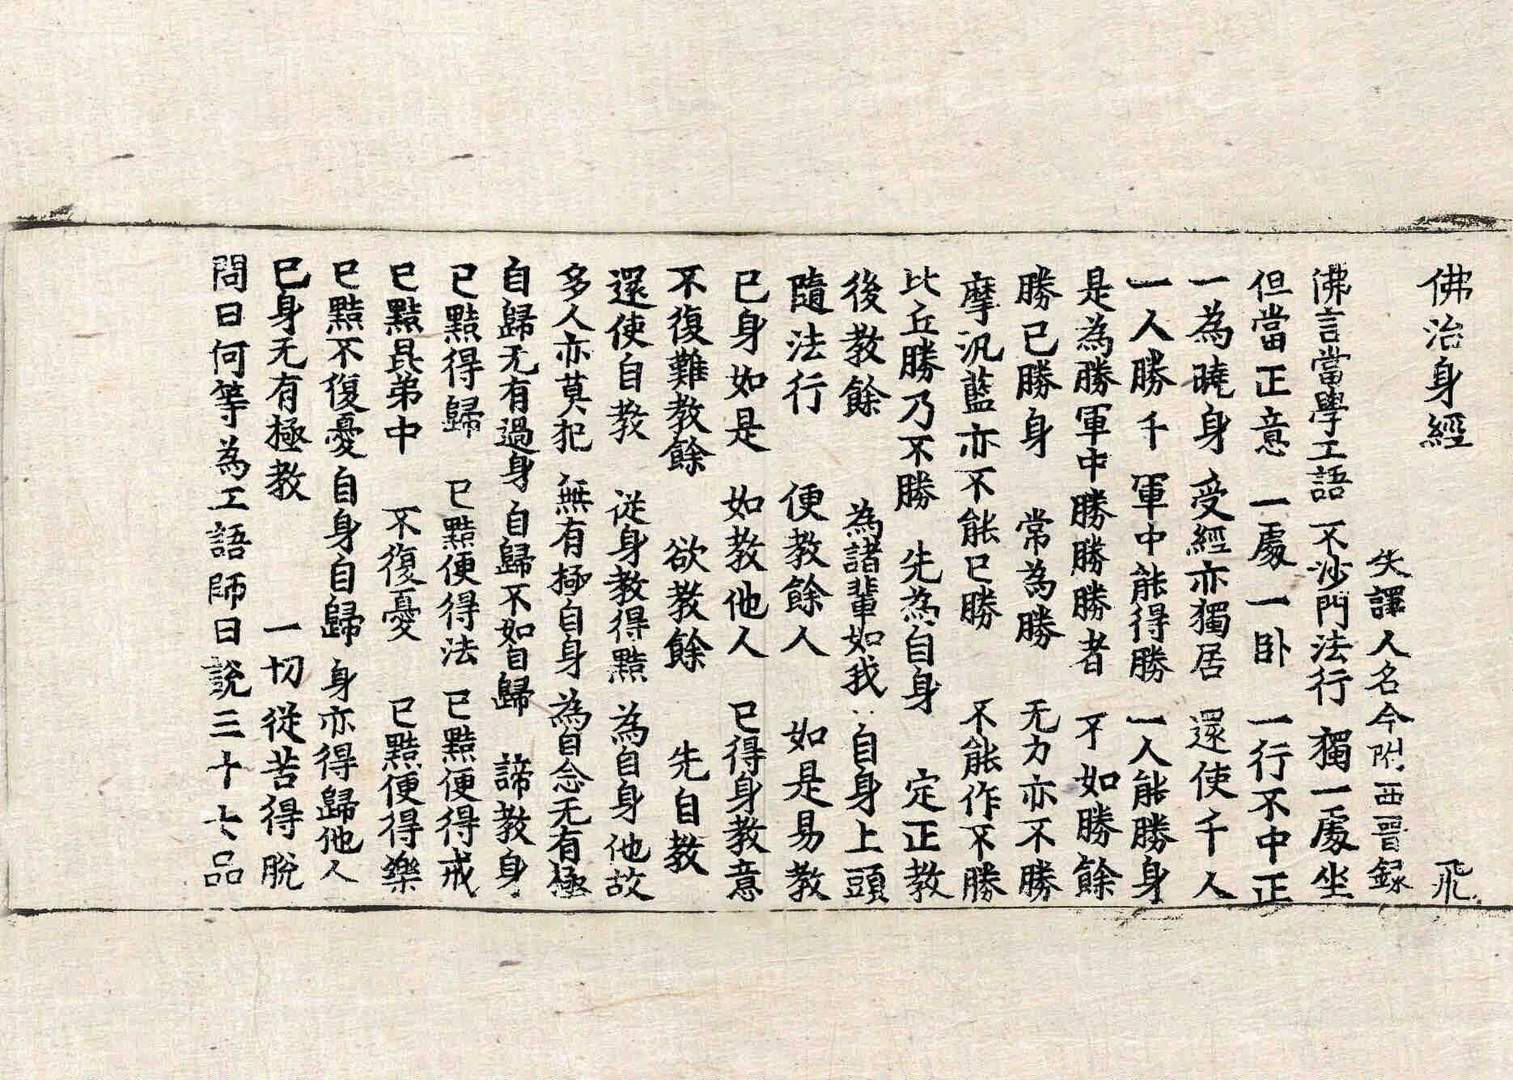 佛治身經 飛
失譯人名今附西晉錄
佛言當學工語 不沙門法行 獨一處坐
但當正意 一處一卧 一行不中正
一為曉身 受經亦獨居 還使千人
一人勝千 軍中能得勝 一人能勝身
是為勝軍中勝勝勝者 不如勝餘
勝已勝身 常為勝 无力亦不勝
摩汎藍亦不能已勝 不能作不勝
比丘勝乃不勝 先為自身 定正教
後教餘 為諸輩如我 自身上頭
隨法行 便教餘人 如是易教
已身如是 如教他人 已得身教意
不復難教餘 欲教餘 先自教
還使自教 從身教得黠 為自身他故
多人亦莫犯 無有極自身 為自念无有極
自歸无有過身 自歸不如自歸 諦教身
已黠得歸 已黠便得法 已黠便得戒
已黠昆弟中 不復憂 已黠便得樂
已黠不復憂 自身自歸 身亦得歸他人
已身无有極教 一切從苦得脫
問曰何等為工語師曰說三十七品